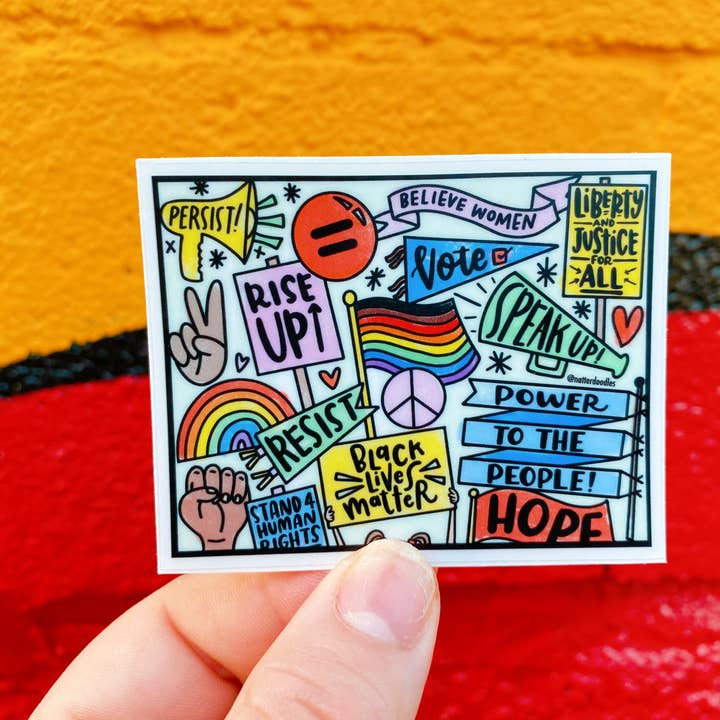 PERSIST!
BELIEVE WOMEN
LIBERTY
AND
JUSTICE
FOR
ALL
Vote
RISE
UP↑
SPEAK UP!
@natterdoodles
POWER
TO THE
PEOPLE!
RESIST
BLACK
LIVES
MATTER
STAND 4
HUMAN
RIGHTS
HOPE